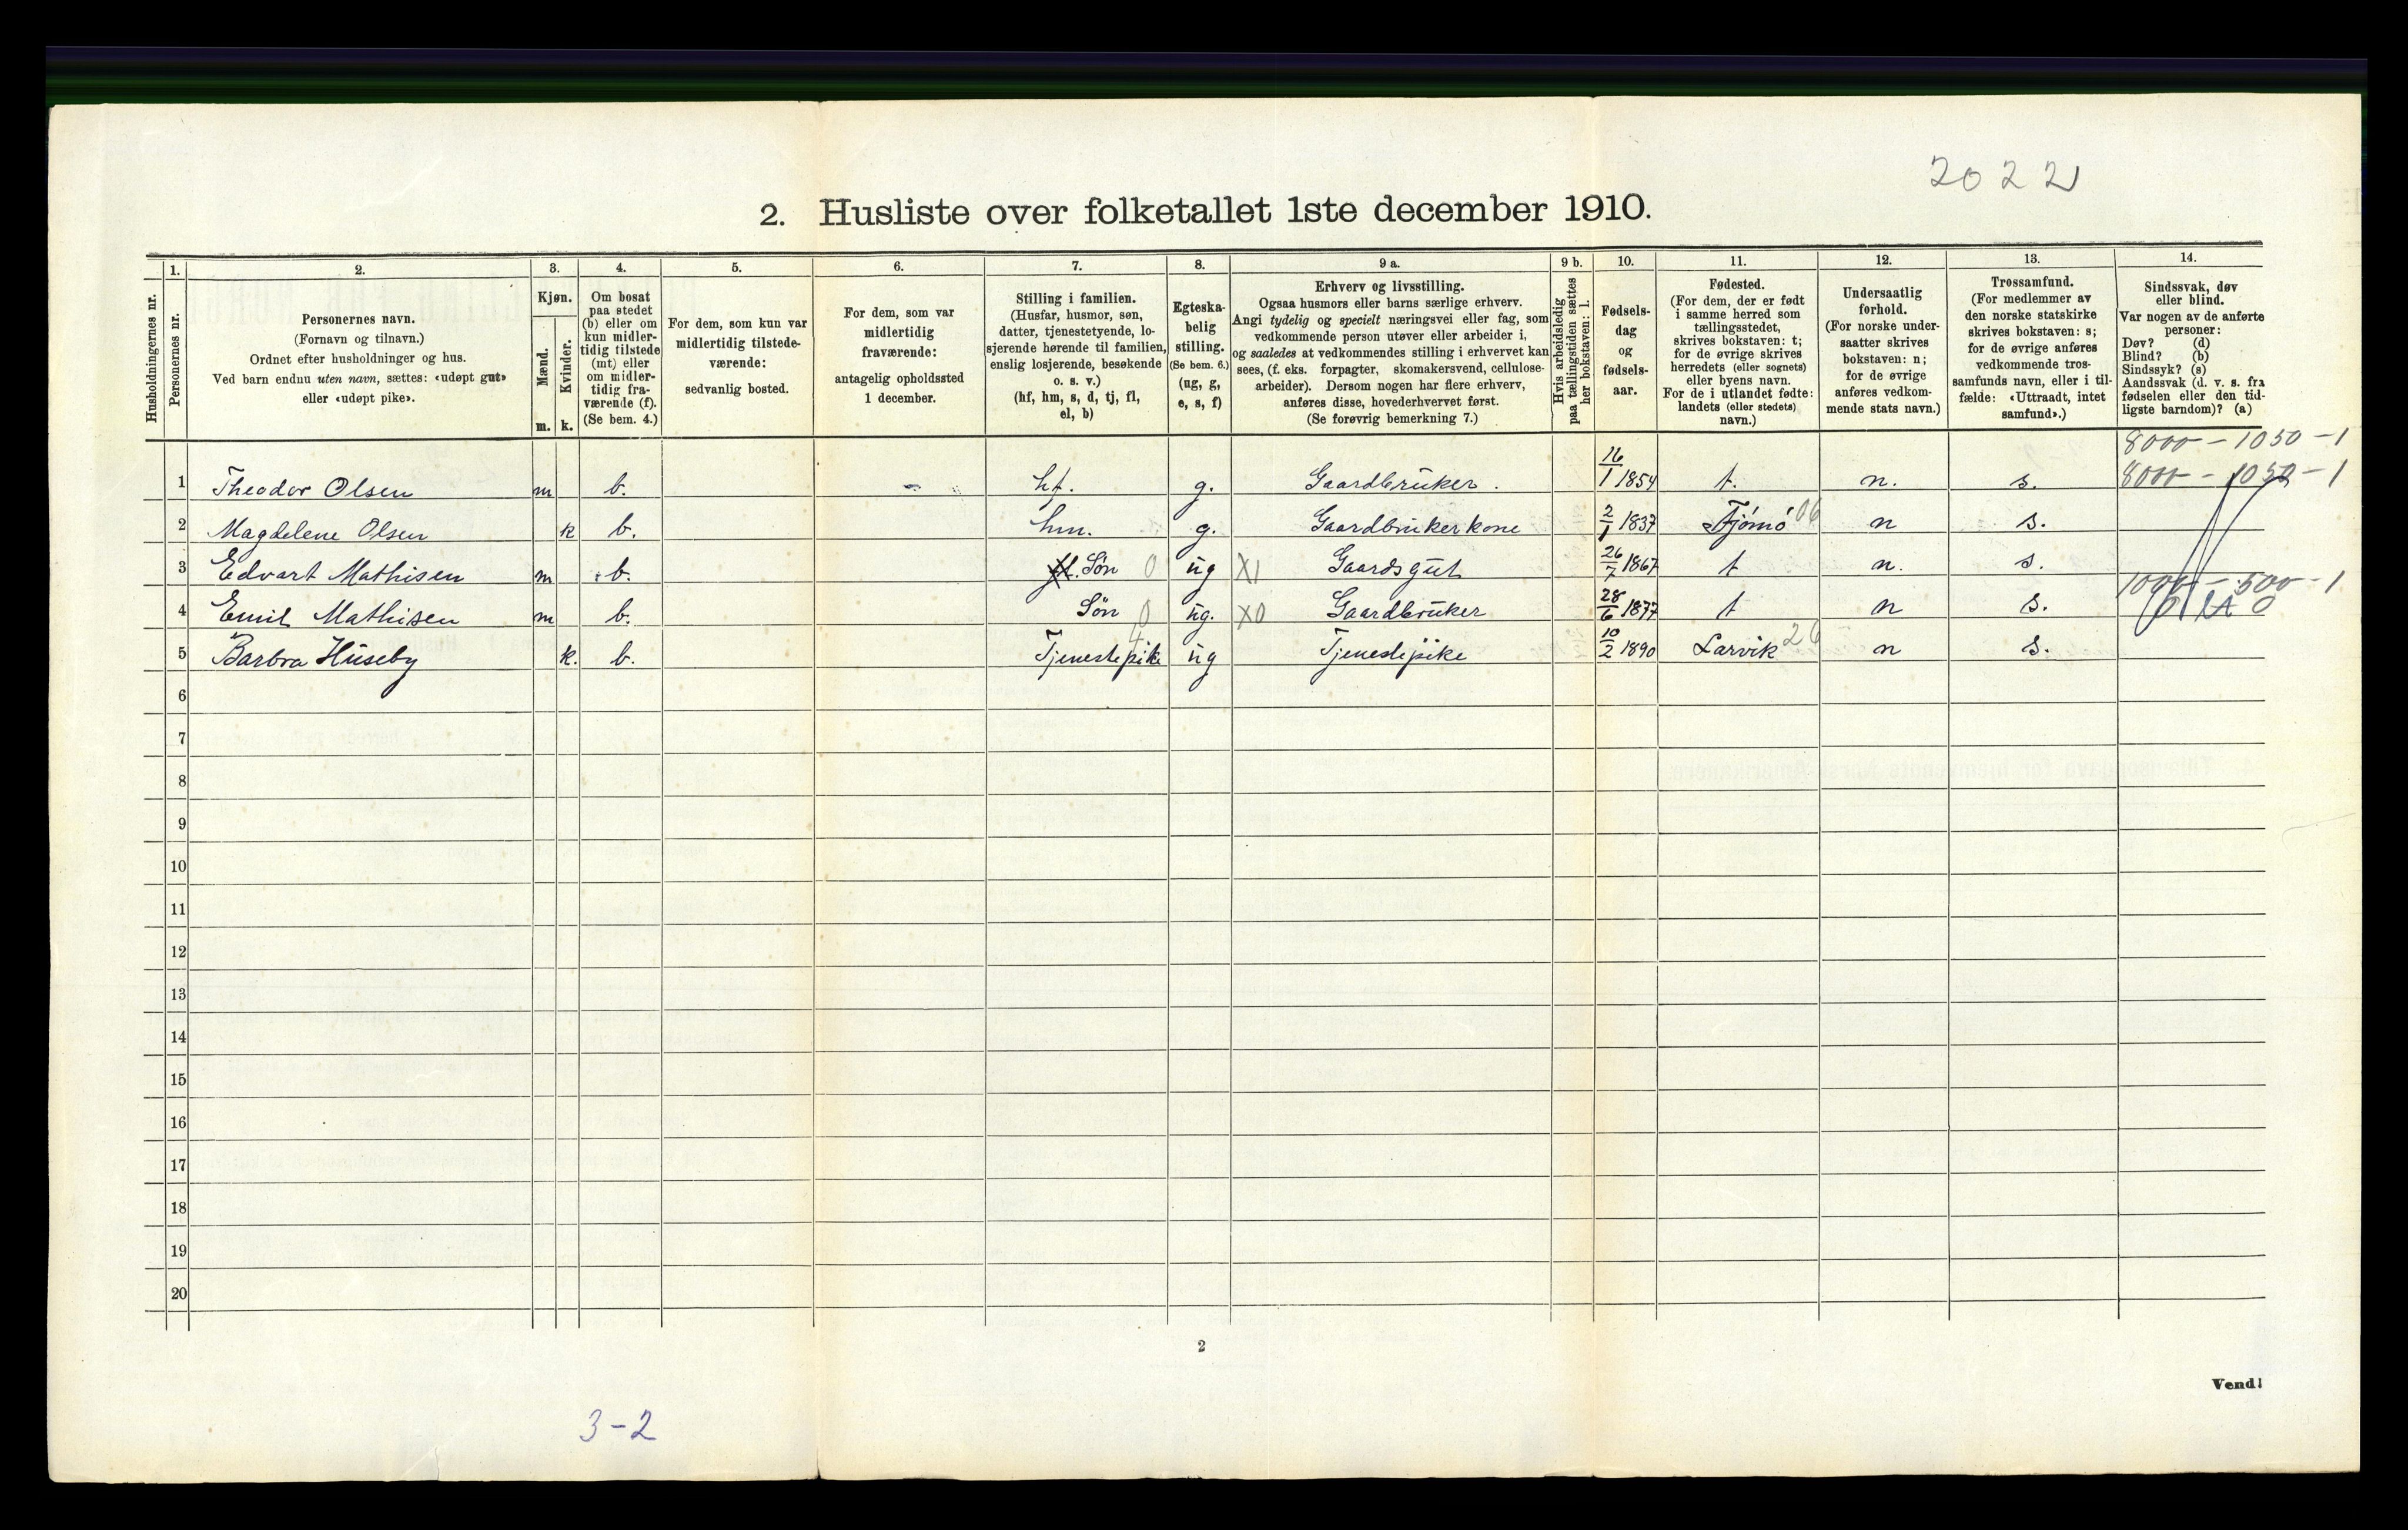 2022
2. Husliste over folketallet 1ste december 1910.
Husholdningernes nr.
1.
Personernes nr.
2.
Personernes navn.
(Fornavn og tilnavn.)
Ordnet efter husholdninger og hus.
Ved barn endnu uten navn, sættes: «udøpt gut»
eller «udøpt pike».
3.
Kjøn.
Mænd.
Kvinder.
m. k.
4.
Om bosat
paa stedet
(b) eller om
kun midler-
tidig tilstede
(mt) eller
om midler-
tidig fra-
værende (f).
(Se bem. 4.)
5.
For dem, som kun var
midlertidig tilstede-
værende:
sedvanlig bosted.
6.
For dem, som var
midlertidig
fraværende:
antagelig opholdssted
1 december.
7.
Stilling i familien.
(Husfar, husmor, søn,
datter, tjenestetyende, lo-
sjerende hørende til familien,
enslig losjerende, besøkende
o. s. v.)
(hf, hm, s, d, tj, fl,
el, b)
8.
Egteska-
belig
stilling.
(Se bem. 6.)
(ug, g,
e, s, f)
9 a.
Erhverv og livsstilling.
Ogsaa husmors eller barns særlige erhverv.
Angi tydelig og specielt næringsvei eller fag, som
vedkommende person utøver eller arbeider i,
og saaledes at vedkommendes stilling i erhvervet kan
sees, (f. eks. forpagter, skomakersvend, cellulose-
arbeider). Dersom nogen har flere erhverv,
anføres disse, hovederhvervet først.
(Se forøvrig bemerkning 7.)
9 b.
Hvis arbeidsledig
paa tællingstiden sættes
her bokstaven: l.
10.
Fødsels-
dag
og
fødsels-
aar.
11.
Fødested.
(For dem, der er født
i samme herred som
tællingsstedet,
skrives bokstaven: t;
for de øvrige skrives
herredets (eller sognets)
eller byens navn.
For de i utlandet fødte:
landets (eller stedets)
navn.)
12.
Undersaatlig
forhold.
(For norske under-
saatter skrives
bokstaven: n;
for de øvrige
anføres vedkom-
mende stats navn.)
13.
Trossamfund.
(For medlemmer av
den norske statskirke
skrives bokstaven: s;
for de øvrige anføres
vedkommende tros-
samfunds navn, eller i til-
fælde: «Uttraadt, intet
samfund».)
14.
Sindssvak, døv
eller blind.
Var nogen av de anførte
personer:
Døv? (d)
Blind? (b)
Sindssyk? (s)
Aandssvak (d. v. s. fra
fødselen eller den tid-
ligste barndom)? (a)
8000 - 1050 - 1
1 Theodor Olsen m b. - hf. g. Gaardbruker. 16/1 1854 t. n. s. 8000 - 1050 - 1
2 Magdelene Olsen k b. hm. g. Gaardbrukerkone 2/1 1837 Tjømø 06 n s.
3 Edvart Mathisen m b. fl. Søn 0 ug X1 Gaardsgut 26/7 1867 t n. s.
1000 - 500 - 1
4 Emil Mathisen m b. Søn 0 ug. X0 Gaardbruker 28/6 1877 t n s.
5 Barbra Huseby k. b. Tjenestepike 4 ug Tjenestepike 10/2 1890 Larvik 26 n s.
6
7
8
9
10
11
12
13
14
15
16
17
18
19
20
2
Vend!
3-2